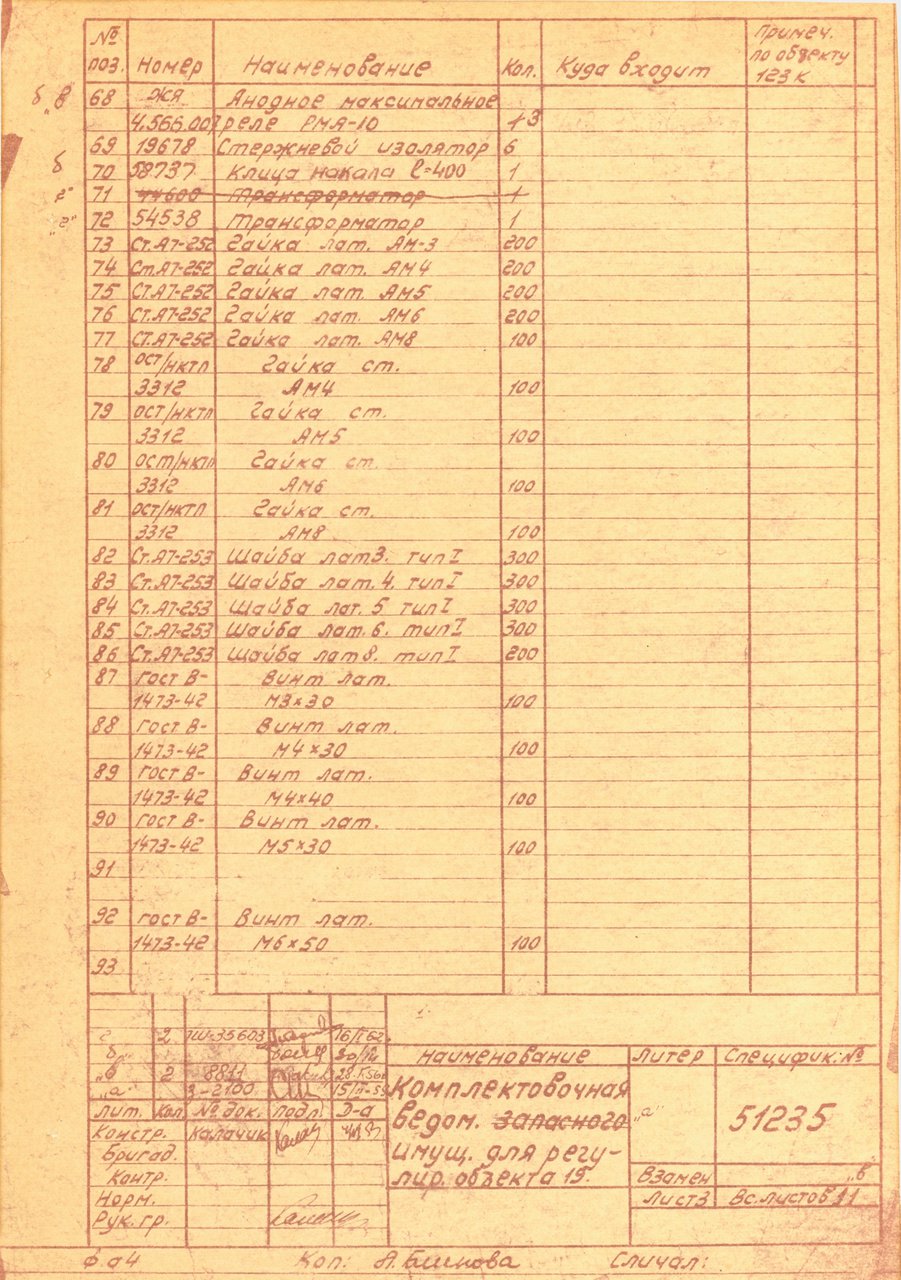 № поз. Номер Наименование Кол. Куда входит Примеч. по объекту 123 к
б „в" 68 ЖЯ Анодное максимальное
4.566.007 реле РМА-10 1 3
69 19678 Стержневой изолятор 6
б 70 58737 Клица накала l=400 1
„г" 71 44600 Трансформатор 1
„г" 72 54538 Трансформатор 1
73 Ст.А7-252 Гайка лат. АМ-3 200
74 Ст.А7-252 Гайка лат. АМ4 200
75 Ст.А7-252 Гайка лат. АМ5 200
76 Ст.А7-252 Гайка лат. АМ6 200
77 Ст.А7-252 Гайка лат. АМ8 100
78 ОСТ/НКТП Гайка ст.
3312 АМ4 100
79 ОСТ/НКТП Гайка ст.
3312 АМ5 100
80 ОСТ/НКТП Гайка ст.
3312 АМ6 100
81 ОСТ/НКТП Гайка ст.
3312 АМ8 100
82 Ст.А7-253 Шайба лат 3. тип I 300
83 Ст.А7-253 Шайба лат. 4. тип I 300
84 Ст.А7-253 Шайба лат. 5 тип I 300
85 Ст.А7-253 Шайба лат. 6. тип I 300
86 Ст.А7-253 Шайба лат 8. тип I 200
87 ГОСТ В- Винт лат.
1473-42 М3×30 100
88 ГОСТ В- Винт лат.
1473-42 М4×30 100
89 ГОСТ В- Винт лат.
1473-42 М4×40 100
90 ГОСТ В- Винт лат.
1473-42 М5×30 100
91
92 ГОСТ В- Винт лат.
1473-42 М6×50 100
93
г 2 ТШ-35603 16/II 62.
б"
„в" 2 8811
„а" 3-2100
Лит. Кол. № док. Подп. Д-а
Констр. Калачик
Бригад.
Контр.
Норм.
Рук. гр.
Наименование Литер Специфик: №
Комплектовочная
ведом. запасного „а" 51235
имущ. для регу-
лир. объекта 15.
Взамен „в"
Лист 3 Вс. листов 11
Ф. а4 Коп: Сличал: